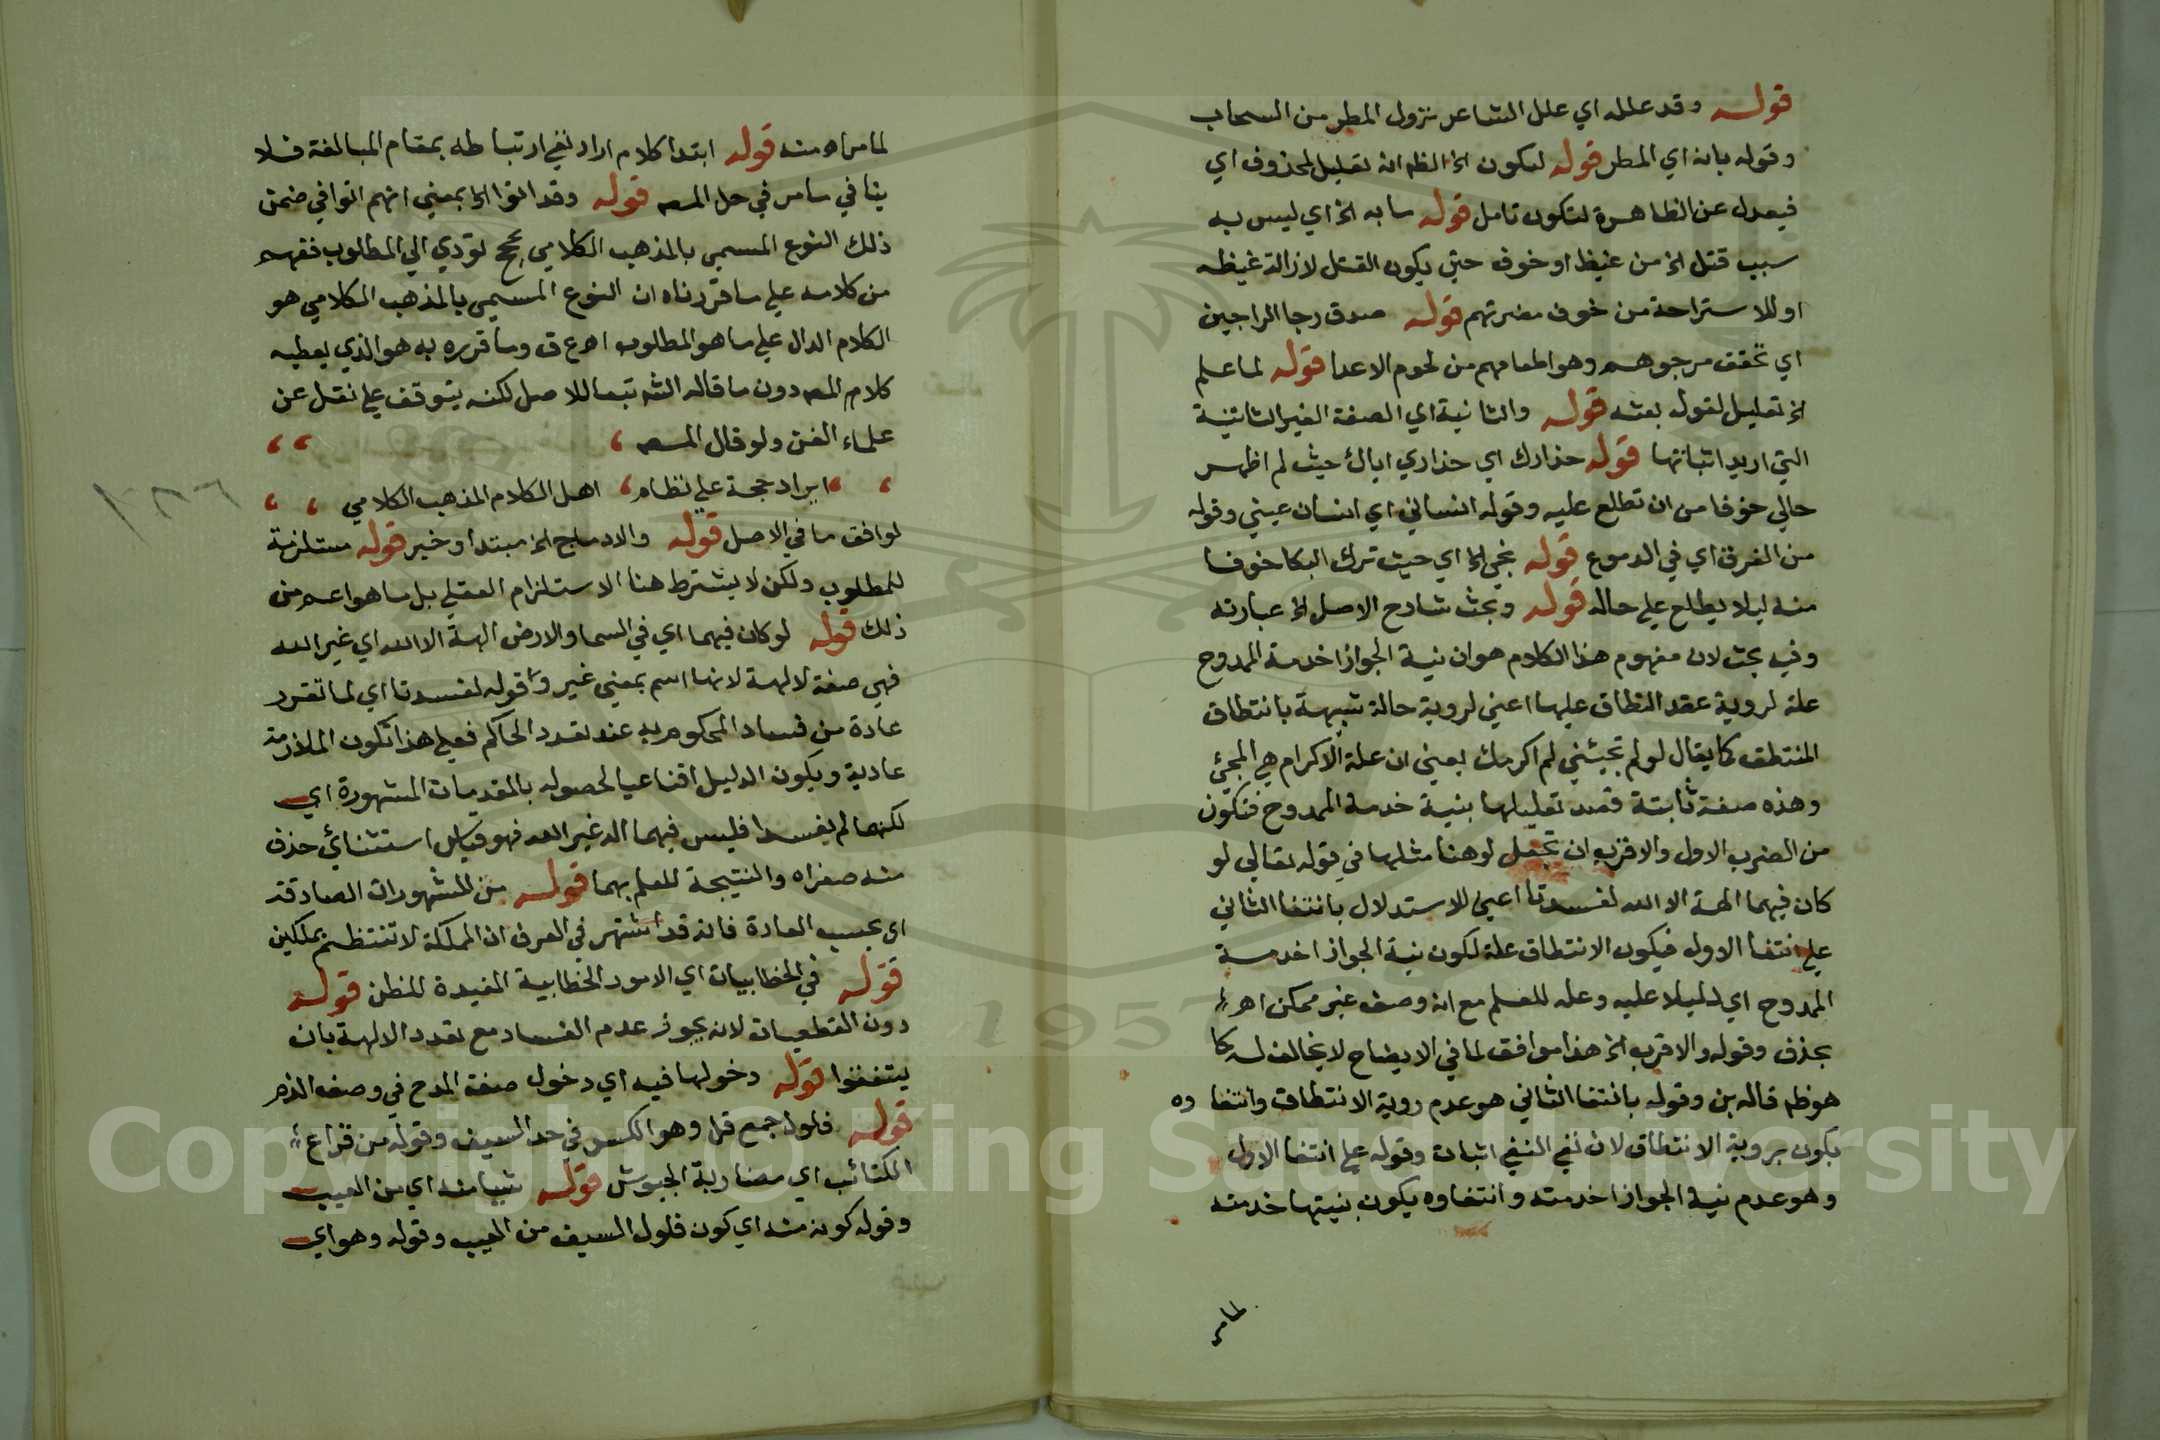 قوله وقد علله اي علل الشاعر نزول المطر من السحاب
وقوله بانه اي المطر قوله ليكون الخ الظ انه تعليل لمحذوف اي
فيعدل عن الظاهرة لتكون تامل قوله مابه الخ اي ليس به
سبب قتل الخ من غيظ او خوف حتي يكون القتل لازالة غيظه
او للاستراحة من خوف مضرتهم قوله صدق رجا الراجين
اي تحقق مرجوهم وهو اطعامهم من لحوم الاعدا قوله لما علم
الخ تعليل لقوله بعثه قوله والثانية اي الصفة الغير الثابتة
التي اريد اثباتها قوله حذارك اي حذاري اياك حيث لم اظهر
حالي خوفا من ان تطلع عليه وقوله انساني اي انسان عيني وقوله
من الغرق اي في الدموع قوله نجي الخ اي حيث ترك البكا خوفا
منه ليلا يطلع علي حاله قوله وبحث شارح الاصل الخ عبارته
وفيه بحث لان مفهوم هذا الكلام هو ان نية الجوازا خدمة الممدوح
علة لروية عقد النطاق عليها اعني لروية حالة شبيهة بانتطاق
المنتطق كما يقال لو لم تجئني لم اكرمك يعني ان علة الاكرام هي المجئ
وهذه صفة ثابتة قصد تعليلها بنية خدمة الممدوح فتكون
من الضرب الاول والاقرب ان تجعل لو هنا مثلها في قوله تعالي لو
كان فيهما الهة الا الله لفسدتا اعني للاستدلال بانتفا الثاني
علي انتفا الاول فيكون الانتطاق علة لكون نية الجوازا خدمة
الممدوح اي دليلا عليه وعله للعلم مع انه وصف غير ممكن اهـ
بحذف وقوله والاقرب الخ هذا موافق لما في الايضاح لا يخالف له كما
هو ظ قاله بن وقوله بانتفا الثاني هو عدم روية الانتطاق وانتفاوه
يكون بروية الانتطاق لان نفي النفي اثبات وقوله علي انتفا الاول
وهو عدم نية الجوازا خدمته وانتفاوه يكون بنيتها خدمته
لما مر
لما مراه منه قوله ابتدا كلام اراد نفي ارتباطه بمقام المبالغة فلا
ينافي ما مر في حل المص قوله وقد اتوا الخ بمعني انهم اتوا في ضمن
ذلك النوع المسمي بالمذهب الكلامي بحجج تودي الي المطلوب ففهم
من كلامه علي ما قررناه ان النوع المسمي بالمذهب الكلامي هو
الكلام الدال علي ما هو المطلوب اهـ ع ق وما قرره به هو الذي يعطيه
كلام المص دون ما قاله الشم تبعا للاصل لكنه يتوقف علي نقل عن
علماء الفن ولو قال المص
ايراد حجة علي نظام اهل الكلام المذهب الكلامي
لوافق ما في الاصل قوله والادماج الخ مبتدا وخبر قوله مستلزمة
للمطلوب ولكن لا يشترط هنا الاستلزام العقلي بل ما هو اعم من
ذلك قوله لو كان فيهما اي في السما والارض الهة الا الله اي غير الله
فهي صفة لالهة لانها اسم بمعني غير وقوله لفسدتا اي لما تقرر
عادة من فساد المحكوم به عند تعدد الحاكم فعلي هذا تكون الملازمة
عادية ويكون الدليل اقناعيا لحصوله بالمقدمات المشهورة اي
لكنهما لم يفسدا فليس فيهما اله غير الله فهو قياس استثنائي حذف
منه صغراه والنتيجة للعلم بهما قوله من المشهورات الصادقة
اي بحسب العادة فانه قد اشتهر في العرف ان المملكة لا تنتظم بملكين
قوله في الخطابيات اي الامور الخطابية المفيدة للظن قوله
دون القطعيات لانه يجوز عدم الفساد مع تعدد الالهة بان
يتفقوا قوله دخولها فيه اي دخول صفة المدح في وصف الذم
قوله فلول جمع فل وهو الكسر في حد السيف وقوله من قراع
الكتائب اي مضاربة الجيوش قوله شيا منه اي من العيب
وقوله كونه منه اي كون فلول السيف من العيب وقوله وهو اي
Copyright © King Saud University
1957